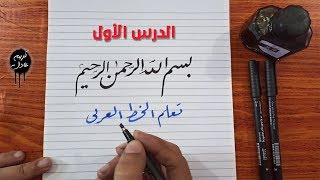 الدرس الأول
بسم الله الرحمن الرحيم
تعلم الخط العربي